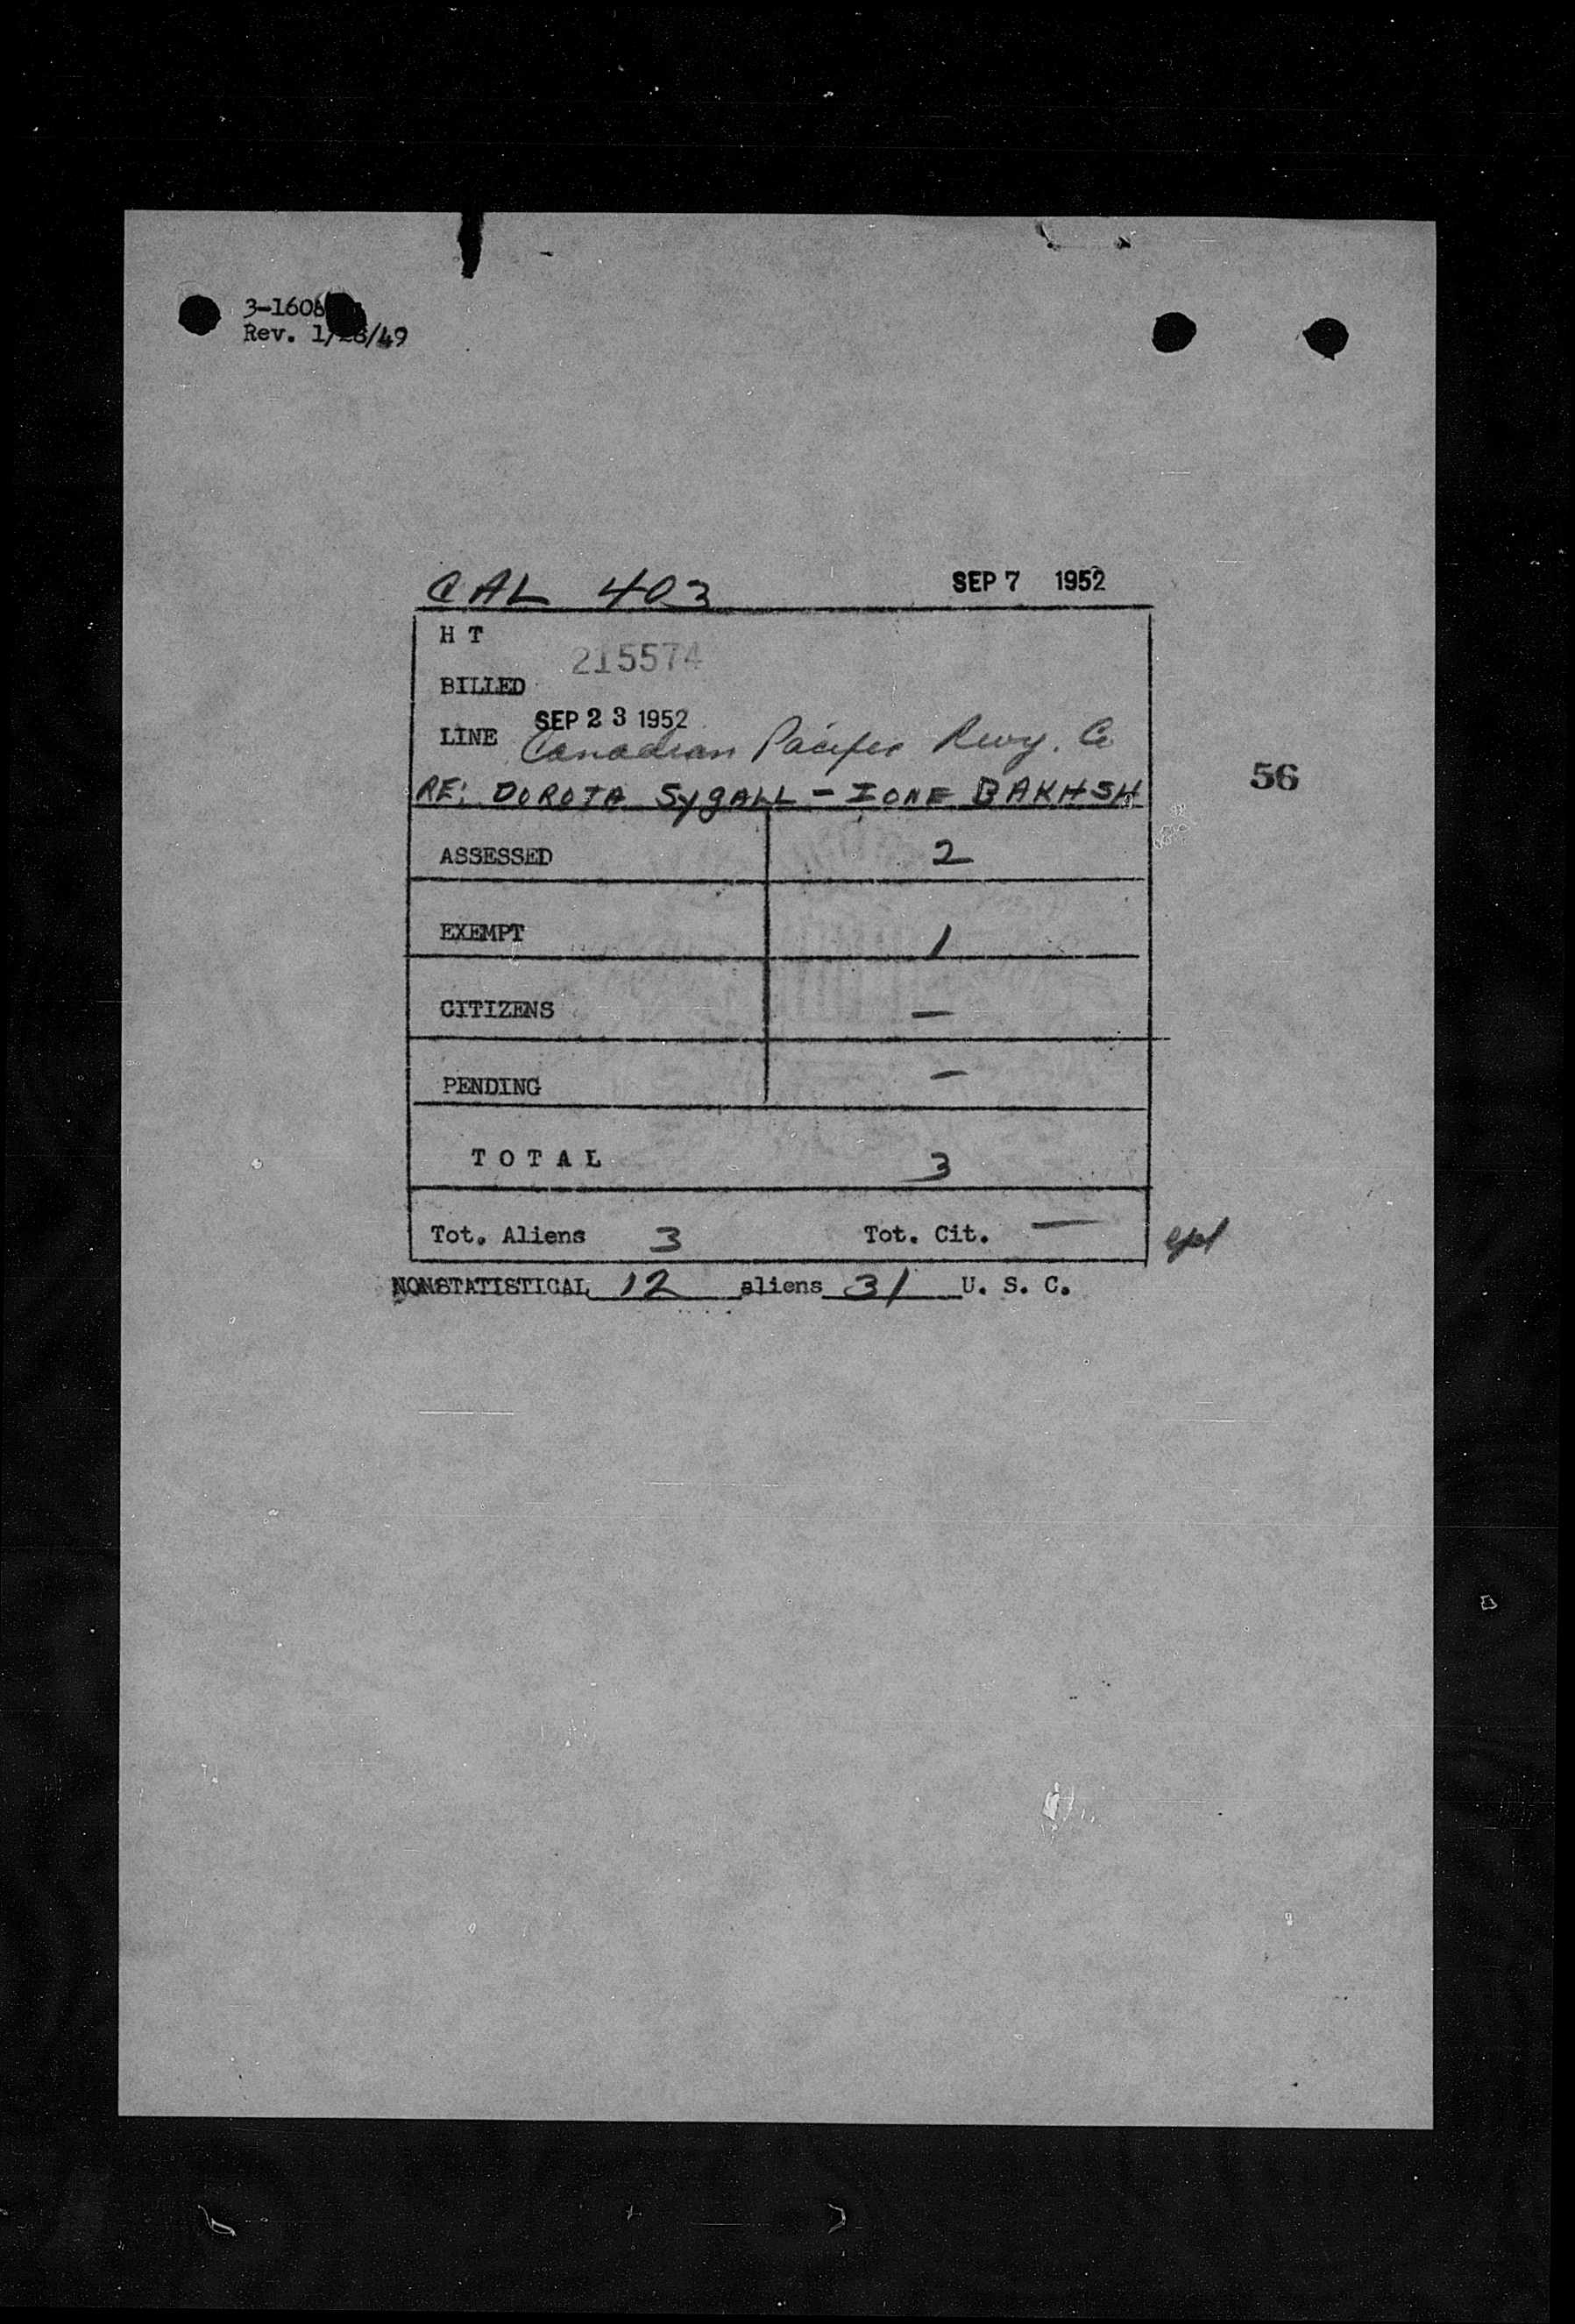 3-1608
Rev. 1/28/49
CAL 403 SEP 7 1952
H T
215574
BILLED
SEP 23 1952
LINE Canadian Pacific Rwy. Co
RE: DOROTA SYGALL - IONE BAKHSH
56
ASSESSED 2
EXEMPT 1
CITIZENS —
PENDING —
TOTAL 3
Tot. Aliens 3 Tot. Cit. —
NONSTATISTICAL 12 aliens 31 U. S. C.